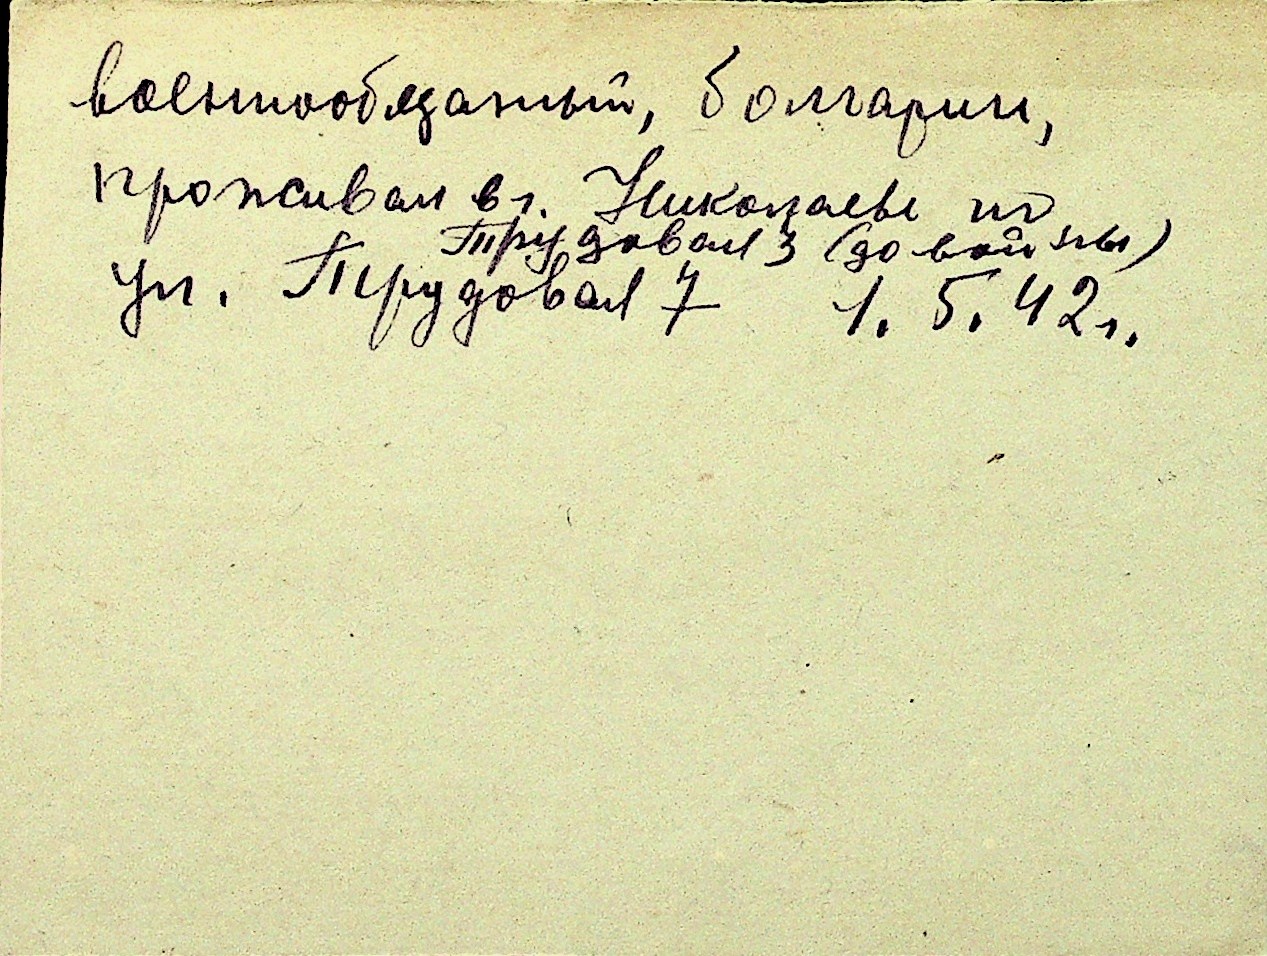 военнообязанный, болгарин,
проживал в г. Николаеве по
Трудовая 3 (до войны)
ул. Трудовая 7 1.5.42г.